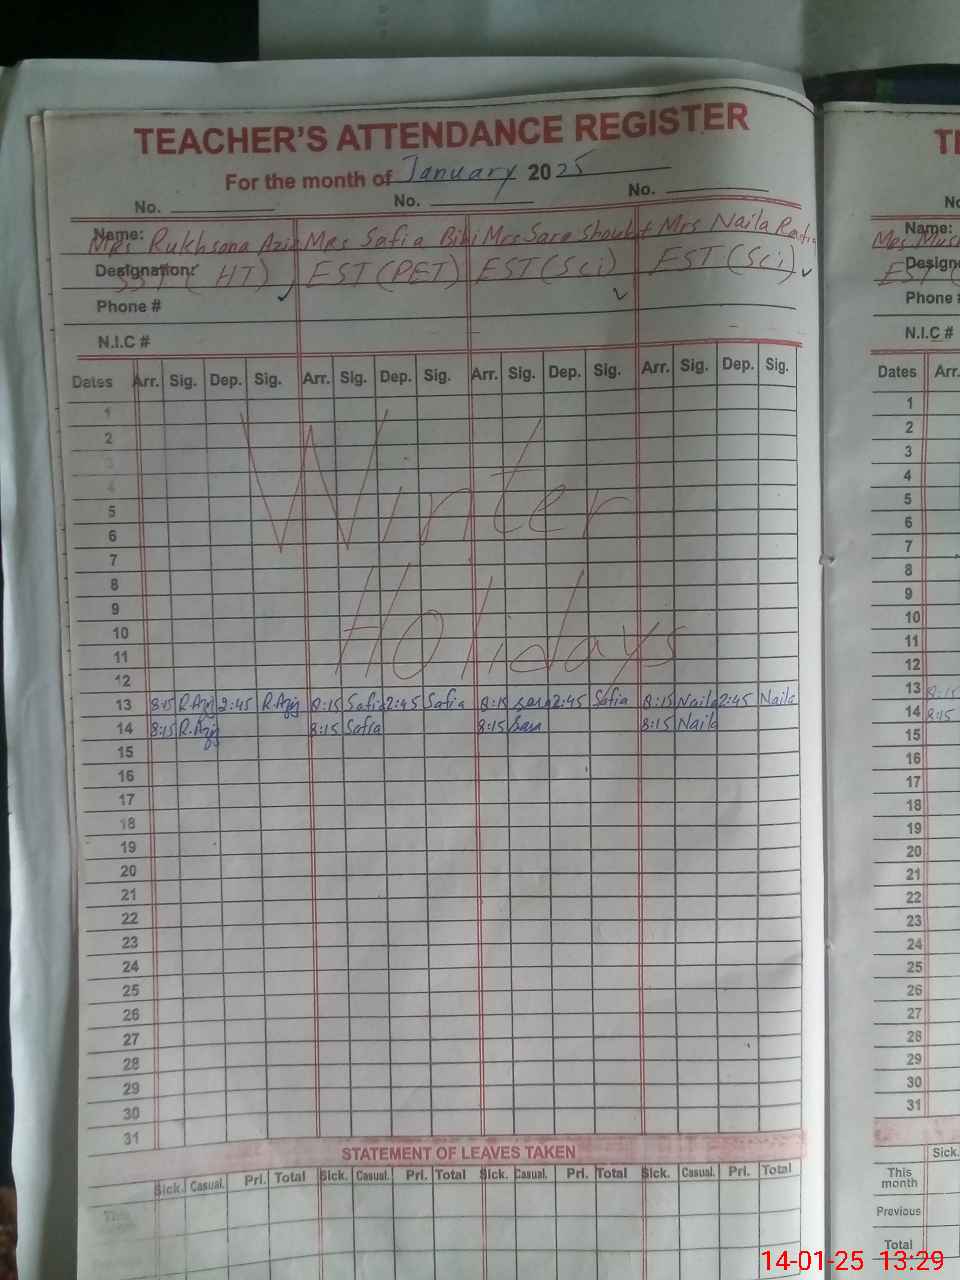 TEACHER'S ATTENDANCE REGISTER
For the month of January 2025
No. No. No.
Name: Mrs Rukhsana Aziz Mrs Safia Bibi Mrs Sara Shoukat Mrs Naila
Designation: SST (HT) EST (PET) EST (Sci) EST (Sci)
Phone #
N.I.C #
Dates Arr. Sig. Dep. Sig. Arr. Sig. Dep. Sig. Arr. Sig. Dep. Sig. Arr. Sig. Dep. Sig.
1
2
3
4
5
6
7
8
9
10
11
12
Winter
Holidays
13 8:15 R.Aziz 2:45 R.Aziz 8:15 Safia 2:45 Safia 8:15 Sara 2:45 Safia 8:15 Naila 2:45 Naila
14 8:15 R.Aziz 8:15 Safia 8:15 Sara 8:15 Naila
15
16
17
18
19
20
21
22
23
24
25
26
27
28
29
30
31
STATEMENT OF LEAVES TAKEN
Sick. Casual. Pri. Total Sick. Casual. Pri. Total Sick. Casual. Pri. Total Sick. Casual. Pri. Total
This
Name:
Phone
N.I.C #
Dates Arr.
1
2
3
4
5
6
7
8
9
10
11
12
13 8:15
14 8:15
15
16
17
18
19
20
21
22
23
24
25
26
27
28
29
30
31
Sick.
This
month
Previous
Total
14-01-25 13:29